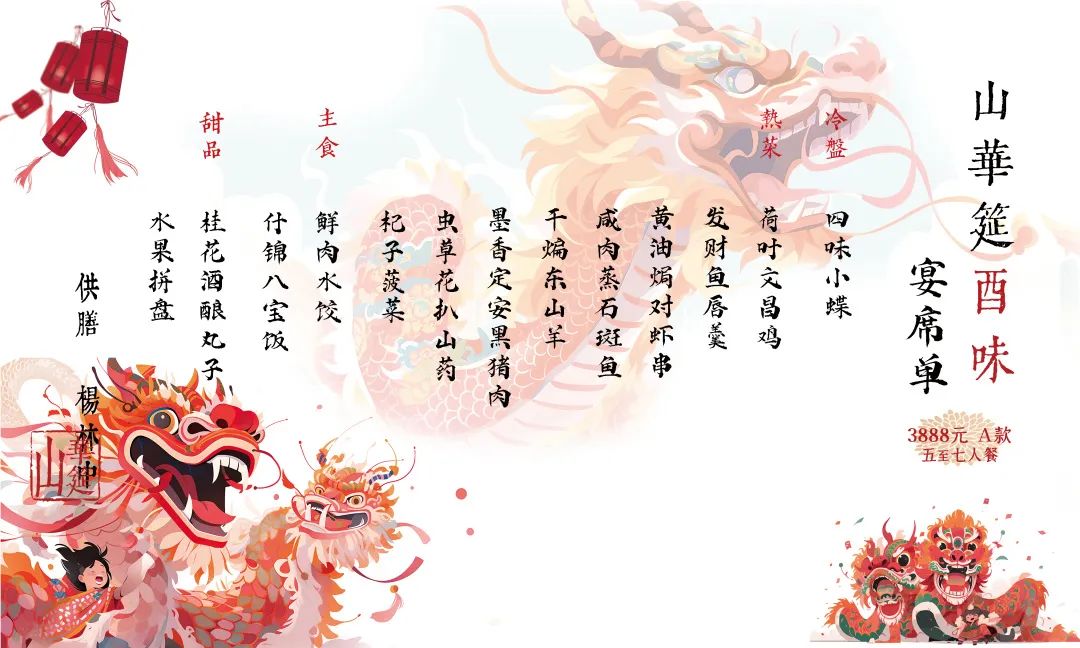 山華筵酉味
宴席单
3888元 A款
五至七人餐
冷盤
四味小蝶
热菜
荷叶文昌鸡
发财鱼唇羹
黄油焗对虾串
咸肉蒸石斑鱼
干煸东山羊
墨香定安黑猪肉
虫草花扒山药
杞子菠菜
主食
鲜肉水饺
什锦八宝饭
甜品
桂花酒酿丸子
水果拼盘
供膳 楊林冲
山華筵